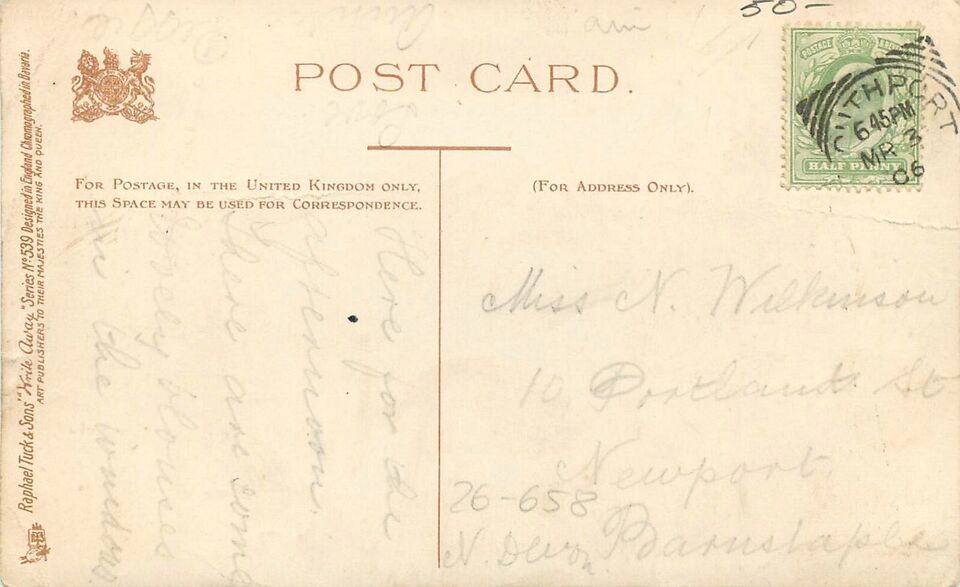 50-
POST CARD.
FOR POSTAGE, IN THE UNITED KINGDOM ONLY,
THIS SPACE MAY BE USED FOR CORRESPONDENCE.
(FOR ADDRESS ONLY).
POSTAGE
HALF PENNY
6 45 PM
MR 3
06
Raphael Tuck & Sons' "Write Away" Series Nº 539 Designed in England Chromographed in Bavaria.
ART PUBLISHERS TO THEIR MAJESTIES THE KING AND QUEEN.
Here for the
afternoon.
There are some
lovely blouses
in the windows
Miss N. Wilkinson
10 Portland St
Newport
Barnstaple
N. Devon
26-658